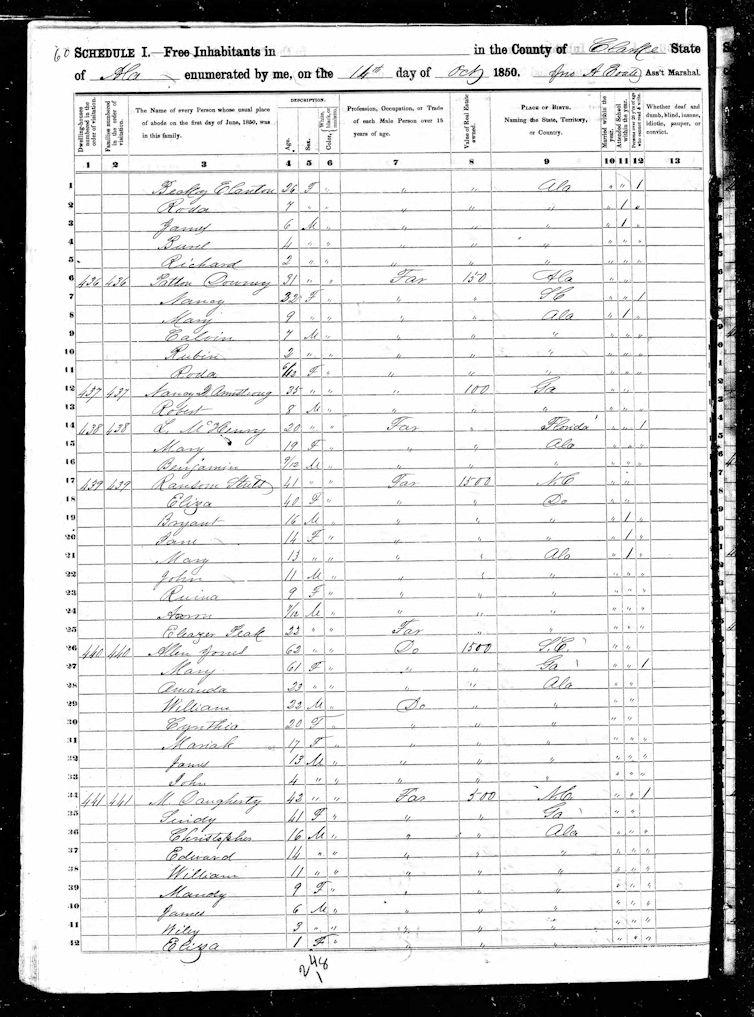 60 SCHEDULE I.—Free Inhabitants in in the County of Clarke State
of Ala enumerated by me, on the 14th day of Oct 1850. Jno A Ass't Marshal.
Dwelling-houses numbered in the order of visitation.
Families numbered in the order of visitation.
The Name of every Person whose usual place of abode on the first day of June, 1850, was in this family.
DESCRIPTION.
Age.
Sex.
Color,
Profession, Occupation, or Trade of each Male Person over 15 years of age.
Value of Real Estate owned.
PLACE OF BIRTH. Naming the State, Territory, or Country.
Married within the year.
Attended School within the year.
Whether deaf and dumb, blind, insane, idiotic, pauper, or convict.
1 2 3 4 5 6 7 8 9 10 11 12 13
1 Becky Clanton 26 F " " " Ala " " 1
2 Roda 7 " " " " " " 1 "
3 James 6 M " " " " " 1 "
4 4 " " " " " " " "
5 Richard 2 " " " " " " " "
6 436 436 Downey 31 " " Far 150 Ala " "
7 Nancy 32 F " " " SC " " 1
8 Mary 9 " " " " Ala " 1 "
9 Calvin 7 M " " " " " " "
10 Rubin 2 " " " " " " " "
11 Roda 6/12 F " " " " " " "
12 437 437 Nancy Armstrong 35 " " " 100 Ga " "
13 Robert 8 M " " " " " " "
14 438 438 L. McHenry 20 " " Far " Florida " " 1
15 Mary 19 F " " " Ala " " "
16 Benjamin 9/12 M " " " " " " "
17 439 439 Ransom 41 " " Far 1500 N.C " "
18 Eliza 40 F " " " Do " "
19 Bryant 16 M " " " " " 1 "
20 Jane 14 F " " " " " 1 "
21 Mary 13 " " " " Ala " 1 "
22 John 11 M " " " " " " "
23 9 F " " " " " " "
24 Aaron 7/12 M " " " " " " "
25 Eleazer 23 " " Far " " " " "
26 440 440 Allen Jones 62 " " Do 1500 S.C. " "
27 Mary 61 F " " " Ga " " 1
28 Amanda 23 " " " " Ala " " "
29 William 22 M " Do " " " " "
30 Cynthia 20 F " " " " " "
31 Mariah 17 F " " " " " " "
32 James 13 M " " " " " " "
33 John 4 " " " " " " " "
34 441 441 M. Daugherty 42 " " Far 500 N.C " " 1
35 Sindy 41 F " " " Ga " "
36 Christopher 16 M " " " Ala " " "
37 Edward 14 " " " " " " " "
38 William 11 " " " " " " " "
39 Mandy 9 F " " " " " " "
40 James 6 M " " " " " " "
41 Wiley 3 " " " " " " " "
42 Eliza 1 F " " " " " " "
248
1